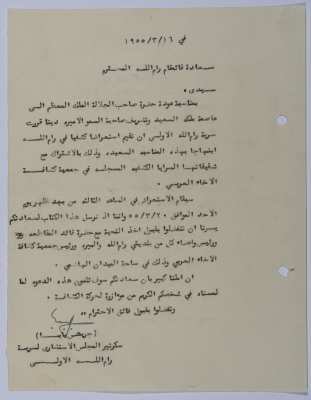 في ١٦/٣/١٩٥٥
سعادة قائمقام رام الله المحترم
سيدي :
بمناسبة عودة حضرة صاحب الجلالة الملك المعظم الى
عاصمة ملكه السعيد وتشريف صاحبة السمو الاميره دينا قررت
سرية رام الله الاولى ان تقيم استعراضا كشفيا في رام الله
ابتهاجا بهذه المناسبه السعيده وذلك بالاشتراك مع
شقيقاتها السرايا الكشفيه المسجله في جمعية كشافة
الاخاء العربي ٠
سيقام الاستعراض في الساعه الثالثه من بعد ظهر يوم
الاحد الموافق ٢٠/٣/٥٥ واننا اذ نرسل هذا الكتاب لسعادتكم
يسرنا ان تتفضلوا بقبول اخذ التحية مع حضرة قائد المقاطعه
ورئيس واعضاء كل من بلديتي رام الله والبيره ورئيس جمعية كشافة
الاخاء العربي وذلك في ساحة الميدان البلدي ٠
ان املنا كبير بان سعادتكم سوف تلبون هذه الدعوه لما
لمسناه في شخصكم الكريم من موازرة لحركة الكشافة ٠
وتفضلوا بقبول فائق الاحترام ،،
سكرتير المجلس الاستشاري لسرية
رام الله الاولى